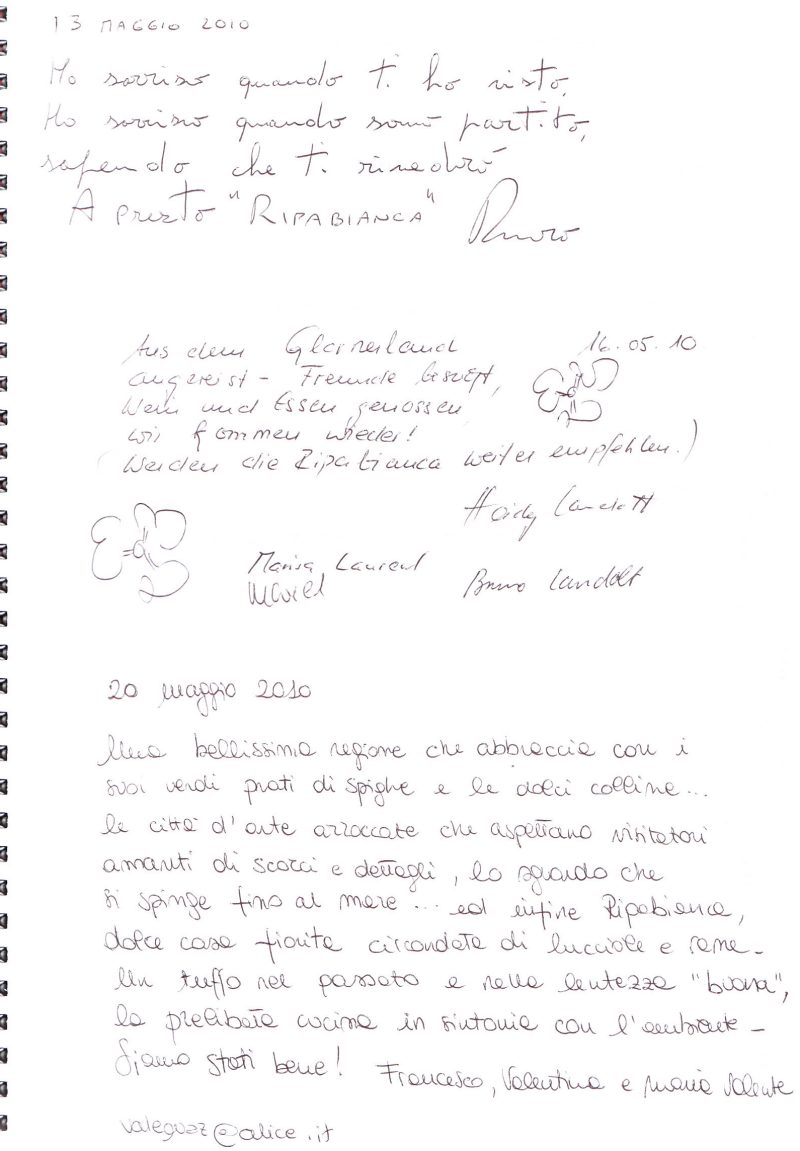 13 MAGGIO 2010
Ho sorriso quando ti ho visto,
Ho sorriso quando sono partito,
sapendo che ti rivedrò
A presto "RIPABIANCA"
Aus dem Glarnerland 16.05.10
angereist - Freunde besucht,
Wein und Essen genossen
wir kommen wieder!
(Werden die Ripabianca weiter empfehlen.)
Heidy Landolt
Marisa, Laurent
Bruno Landolt
20 maggio 2010
Una bellissima regione che abbraccia con i
suoi verdi prati di spighe e le dolci colline...
le città d'arte arroccate che aspettano visitatori
amanti di scorci e dettagli, lo sguardo che
si spinge fino al mare... ed infine Ripabianca,
dolce casa fiorita circondata di lucciole e rane.
Un tuffo nel passato e nella lentezza "buona",
la prelibata cucina in sintonia con l'ambiente -
Siamo stati bene! Francesco, Valentina e Maria Valente
valeguaz@alice.it